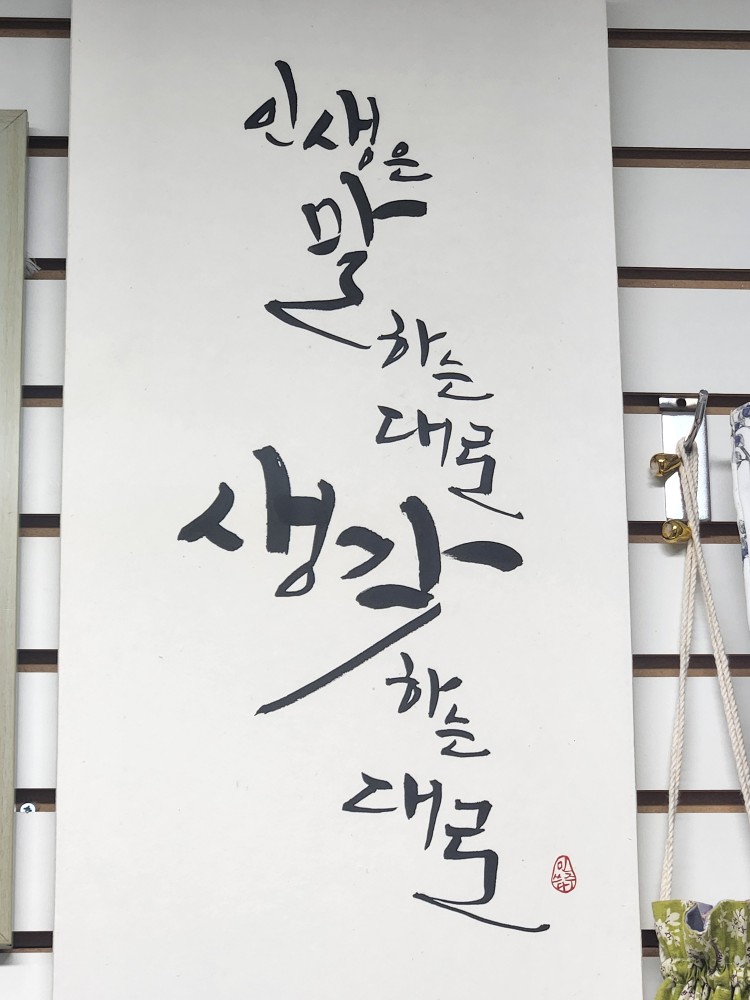 인생은
말
하는
대로
생각
하는
대로